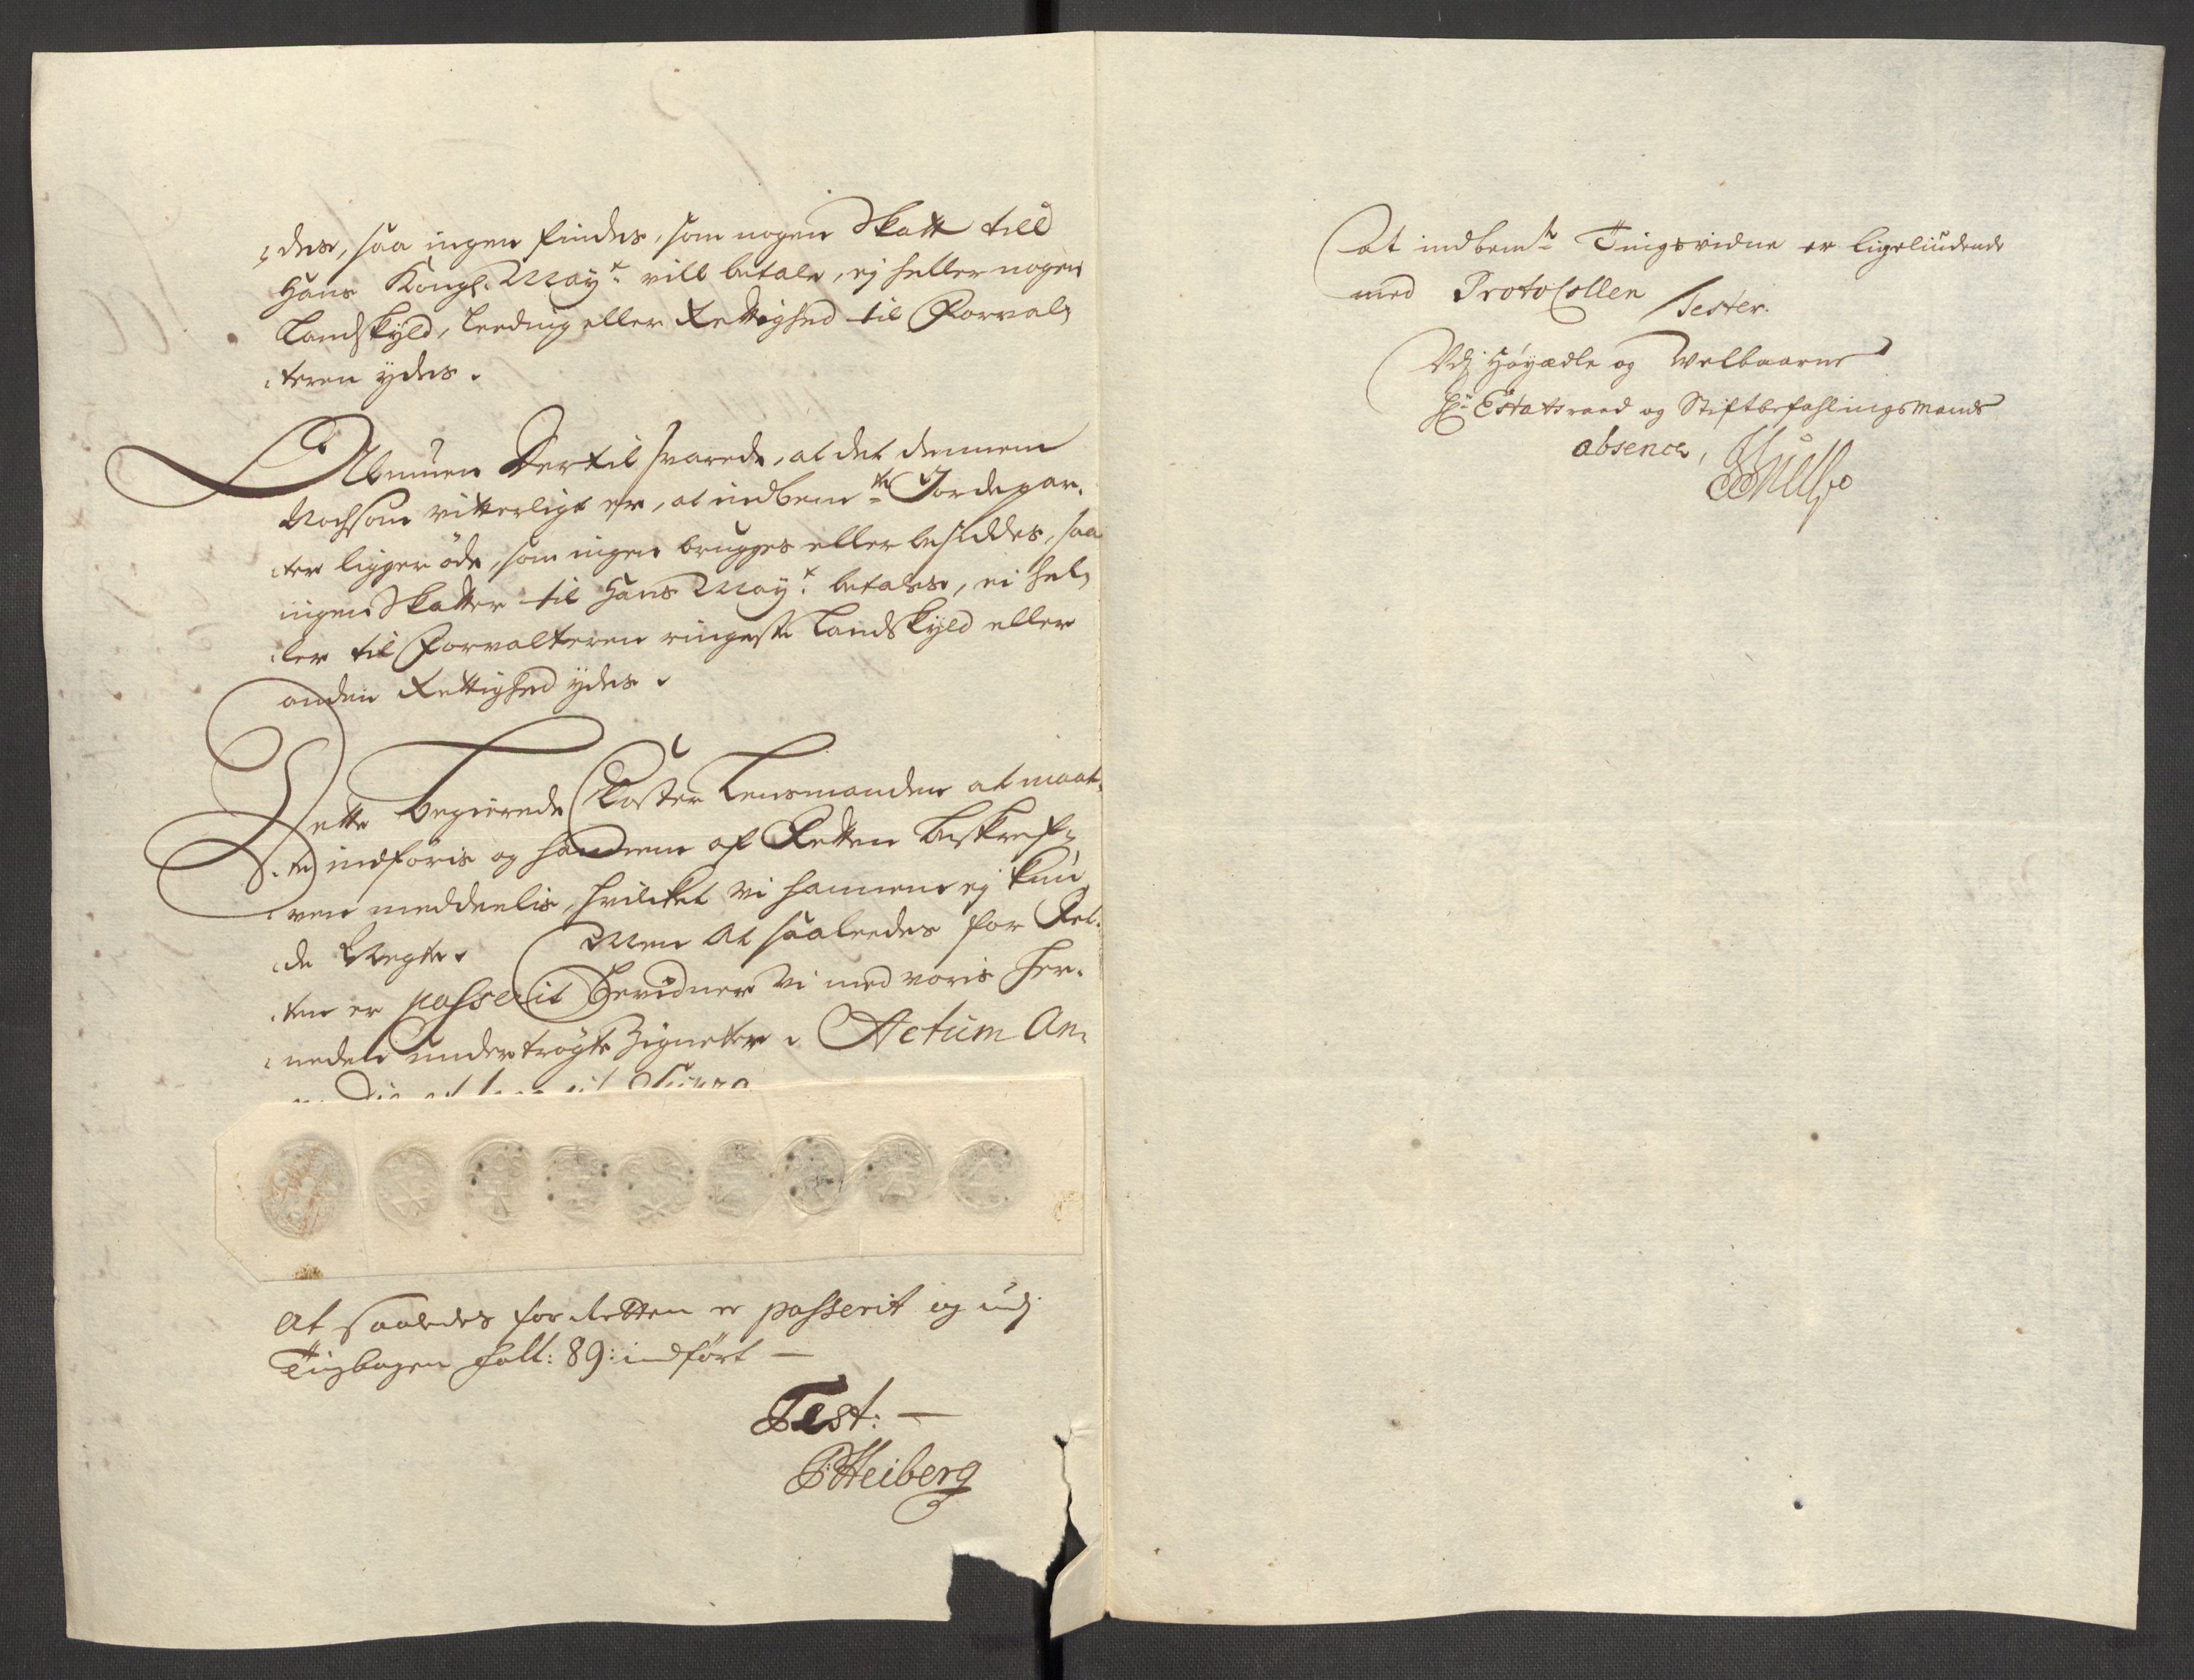 des, saa ingen findes, som nogen Skatt till
Hans Kongl. Mayt: vill betale, ej heller nogen
Landskyld, Leeding eller Rettighed til Forval,
teren ydes.
Allmuen Dertil svarede, at det dennem
Nochsom vitterligt er, at indbemte Jordepar,
ter ligger øde, som ingen brugges eller besiddes, saa
ingen Skatter til Hans Mayt: betales, ei hel,
ler til Forvalteren ringeste Landskyld eller
anden Rettighed ydes.
Dette begierede Closter Lensmanden at maat,
te indføris og hannem af Retten beskref,
ven meddeelis, hvilcket vi hannem ej kun,
de Negte. Men At saaledes for Ret,
ten er passerit Bevidner Vi med voris her,
neden undertrøgte Zigneter. Actum An,
At saaledes for Retten er passerit og udj
Tingbogen foll: 89: indført —
Test: —
P Heiberg
At indbemte Tingsvidne er ligeliudende
med Protocollen Tester.
Udj Høyædle og Velbaarne
Hr. Estatsraad og Stiftbefahlingsmands
absence,